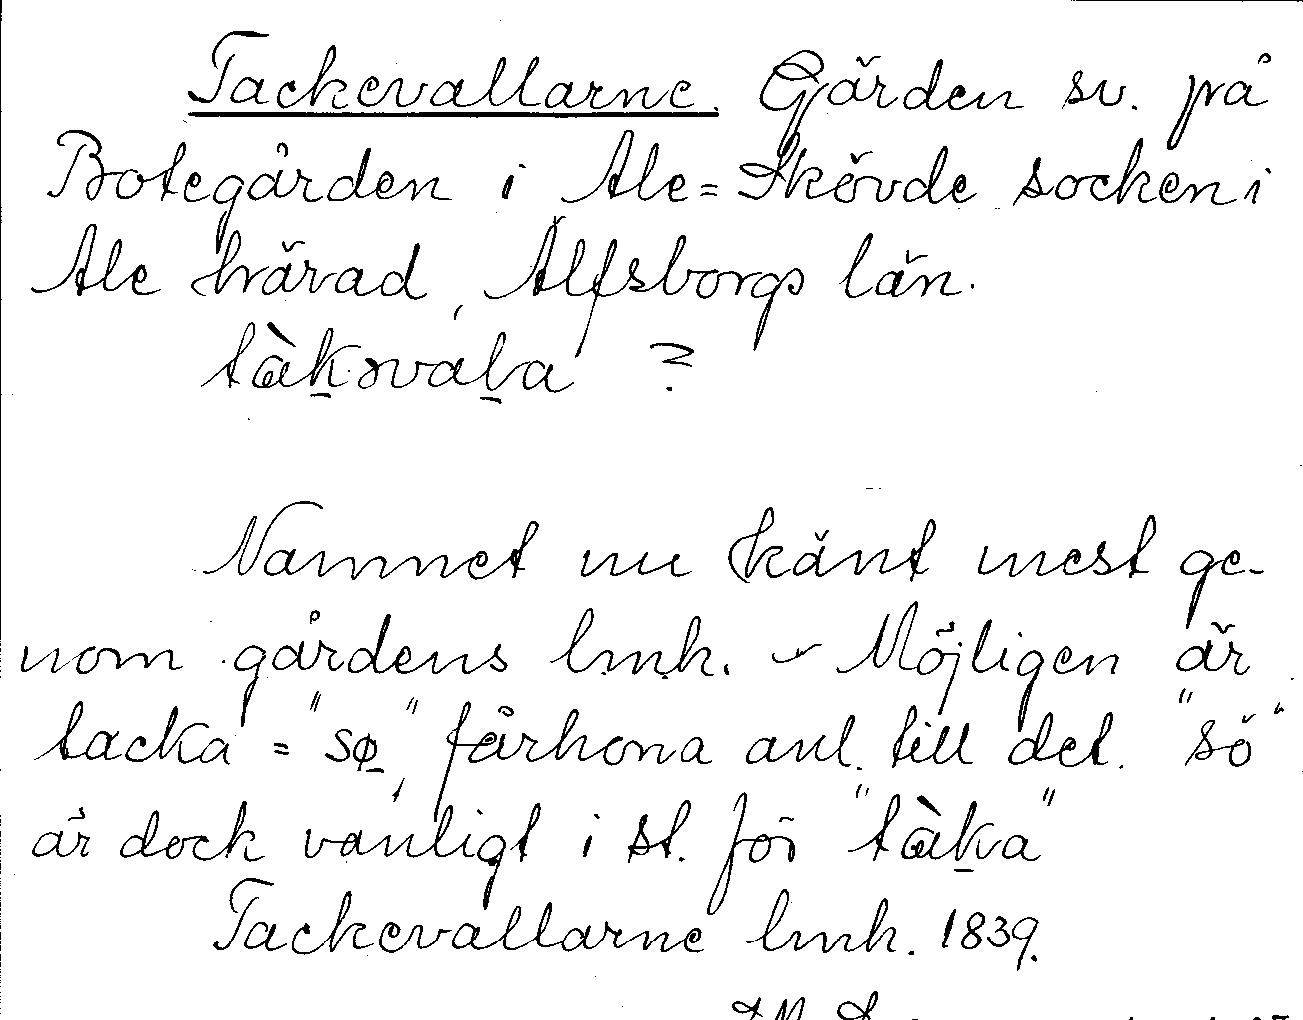 Tackevallarne. Gärden sv. på
Botegården i Ale=Skövde socken i
Ale härad, Älfsborgs län.
tàkəvaḷa ?
Namnet nu känt mest ge-
nom gårdens lmk. - Möjligen är
tacka = "sø", fårhona anl. till det. "sö"
är dock vanligt i st. för "tàka"
Tackevallarne lmk. 1839.